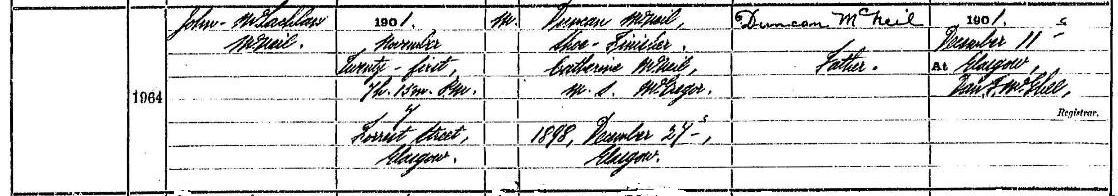 1964
John McLachlan
McNeil.
1901.
November
Twenty-first,
7h. 15m. P.M.
7
Forrest Street,
Glasgow.
M.
Duncan McNeil,
Shoe-Finisher.
Catherine McNeil,
m. s. McGregor.
1898, December 27th,
Glasgow.
Duncan McNeil
Father.
1901.
December 11th
At Glasgow,
Registrar.